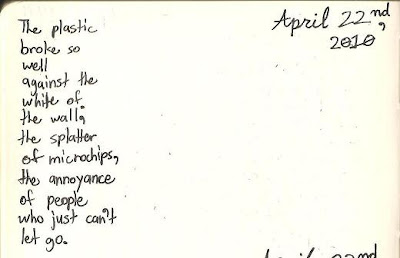 The plastic
broke so
well
against the
white of
the wall;
the splatter
of microchips,
the annoyance
of people
who just can't
let go.
April 22nd,
2010